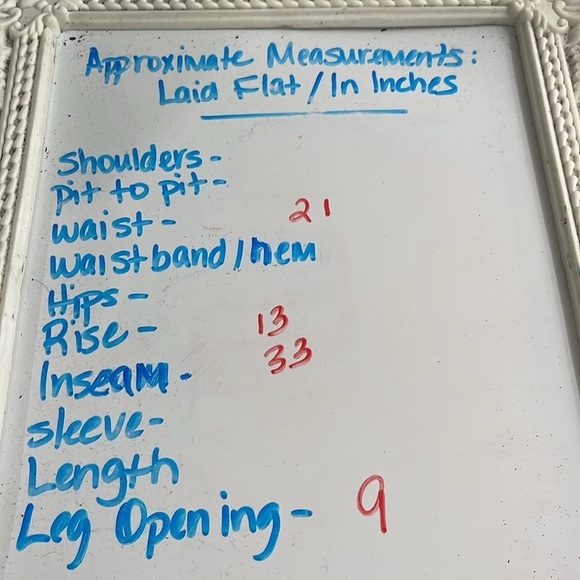 Approximate Measurements:
Laid Flat/In Inches
Shoulders-
Pit to pit-
Waist- 21
Waistband/hem
Hips-
Rise- 13
Inseam- 33
Sleeve-
Length
Leg Opening- 9